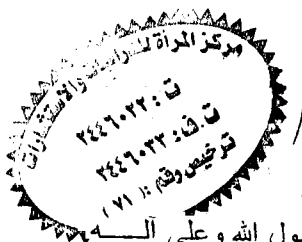 مركز المرأة للدراسات والاستشارات
ت : ٢٤٤٦٠٢٢
ت.ف : ٢٤٤٦٠٣٣
ترخيص رقم : ( ٧١ )
الله وعلى آلـــه